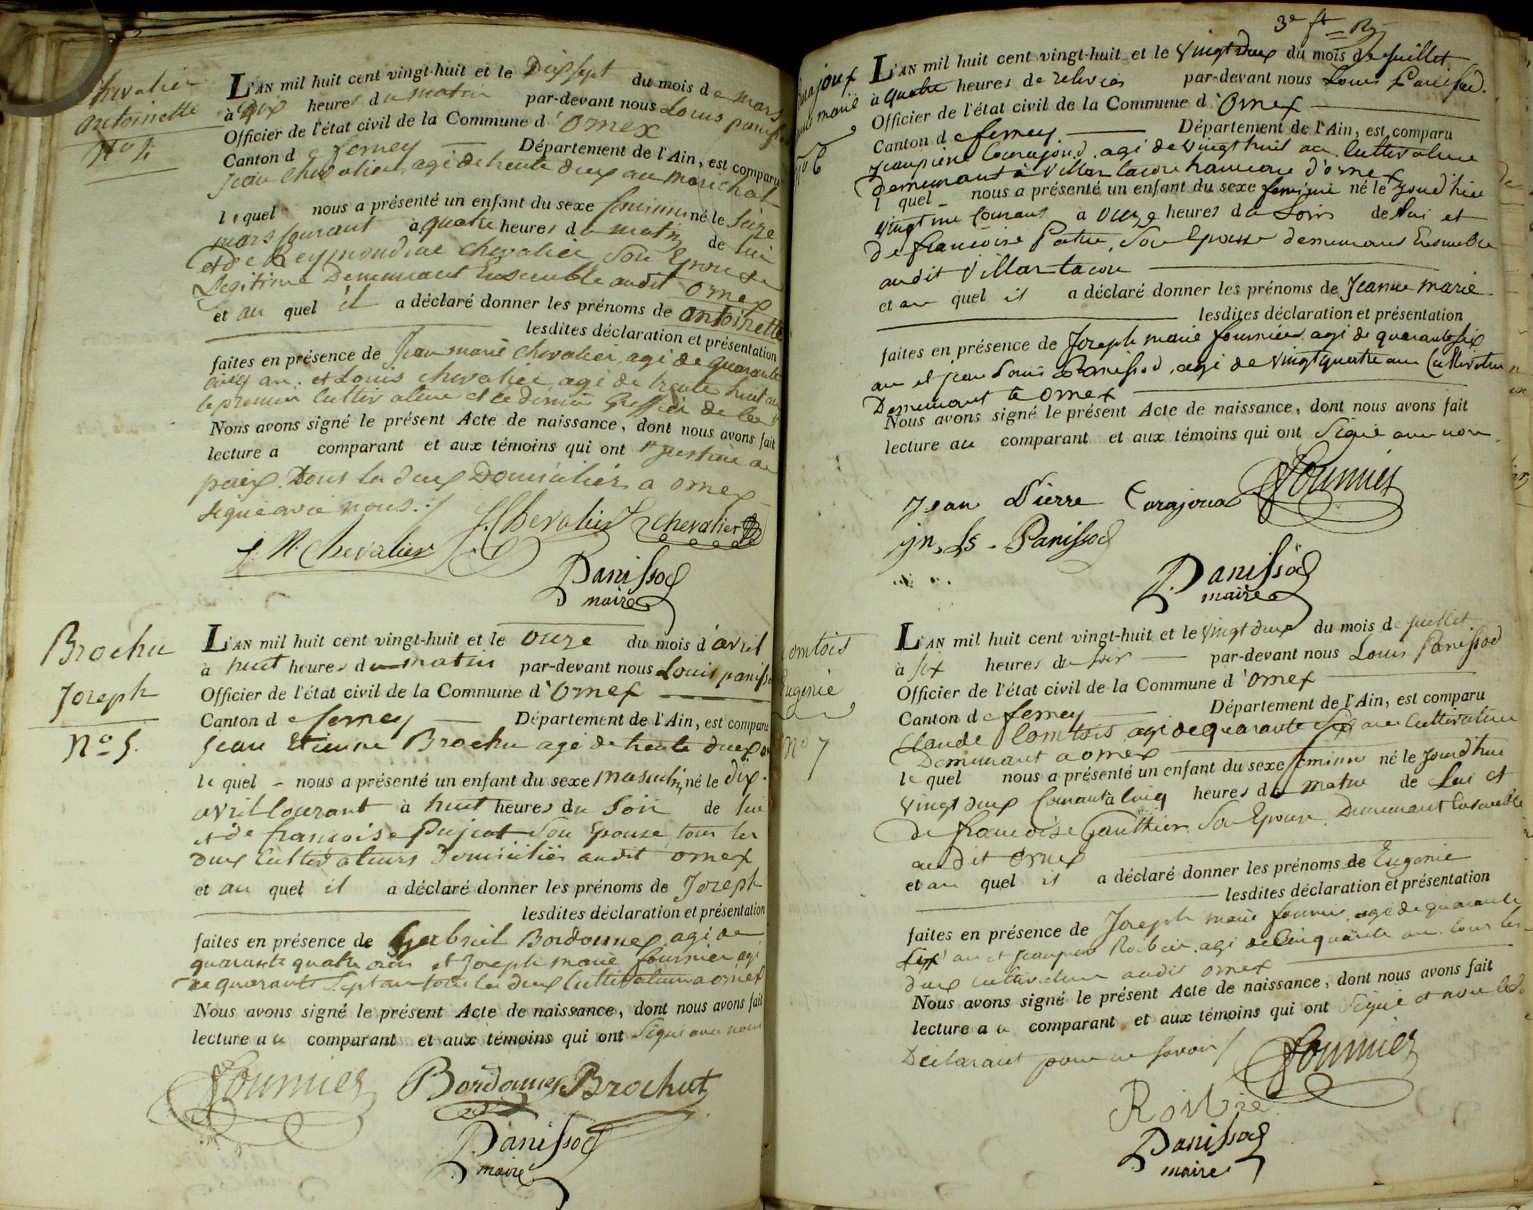 Chevalier
antoinette
N° 4
L'AN mil huit cent vingt-huit et le Dix sept du mois de mars
à dix heures du matin par-devant nous Louis panissod
Officier de l'état civil de la Commune d'Ornex
Canton de ferney Département de l'Ain, est comparu
Jean Chevalier, agé de trente deux ans marechal
lequel nous a présenté un enfant du sexe feminin né le Seize
mars Courant à quatre heures du matin de lui
et de Reymondine Chevalier Son Epouse
Legitime Demeurant Ensemble audit Ornex
et au quel il a déclaré donner les prénoms de antoinette
lesdites déclaration et présentation
faites en présence de Jean marie Chevalier, agé de quarante
ans, et Louis Chevalier, agé de trente huit ans
le premier Cultivateur et le dernier Greffier de la
Nous avons signé le présent Acte de naissance, dont nous avons fait
lecture a comparant et aux témoins qui ont Justice de
paix. Tous les deux Domiciliés a Ornex
Signé avec nous
J. M. Chevalier J. Chevalier L. Chevalier
Panissod
maire
Brochu
Joseph
N° 5.
L'AN mil huit cent vingt-huit et le Onze du mois d'avril
à huit heures du matin par-devant nous Louis panissod
Officier de l'état civil de la Commune d'Ornex
Canton de ferney Département de l'Ain, est comparu
Jean Etienne Brochu agé de trente deux ans
le quel nous a présenté un enfant du sexe masculin, né le dix
avril Courant à huit heures du Soir de lui
et de francoise Pujeot Son Epouse, tous les
deux Cultivateurs Domiciliés audit Ornex
et au quel il a déclaré donner les prénoms de Joseph
lesdites déclaration et présentation
faites en présence de Gabriel Bordonnex, agé de
quarante quatre ans et Joseph marie fournier agé
de quarante Sept ans tous les deux Cultivateurs a Ornex
Nous avons signé le présent Acte de naissance, dont nous avons fait
lecture au comparant et aux témoins qui ont Signé avec nous
Fournier Bordonnex Brochut
Panissod
maire
3e ft
Marie
N° 6
L'AN mil huit cent vingt-huit et le Vingt deux du mois de Juillet
à quatre heures de relevée par-devant nous Louis Panissod.
Officier de l'état civil de la Commune d'Ornex
Canton de ferney Département de l'Ain, est comparu
Jean pierre Corajoud, agé de Vingt huit ans Cultivateur
demeurant à Villar tacon hameau d'ornex
lequel nous a présenté un enfant du sexe feminin né le Jourd'hier
Vingt un Courant à Onze heures du Soir de lui et
de francoise Son Epouse demeurant Ensemble
audit Villar tacon
et au quel il a déclaré donner les prénoms de Jeanne marie
lesdites déclaration et présentation
faites en présence de Joseph marie fournier, agé de quarante Six
ans et Jean Louis Panissod, agé de Vingt quatre ans Cultivateurs
Demeurant à Ornex
Nous avons signé le présent Acte de naissance, dont nous avons fait
lecture au comparant et aux témoins qui ont Signé avec nous
Jean Pierre Corajoud Fournier
jn. Ls. Panissod
Panissod
maire
Comtois
Eugenie
N° 7
L'AN mil huit cent vingt-huit et le Vingt deux du mois de Juillet
à Six heures du Soir par-devant nous Louis Panissod
Officier de l'état civil de la Commune d'Ornex
Canton de ferney Département de l'Ain, est comparu
Claude Comtois agé de quarante ans Cultivateur
Demeurant a Ornex
le quel nous a présenté un enfant du sexe feminin né le Jourd'hui
Vingt deux Courant à Cinq heures du matin de Lui et
de francoise Gaulthier Son Epouse, Demeurant Ensemble
audit Ornex
et au quel il a déclaré donner les prénoms de Eugenie
lesdites déclaration et présentation
faites en présence de Joseph marie fournier, agé de quarante
Six ans et Jean pierre agé de Cinquante ans tous les
deux cultivateurs audit Ornex
Nous avons signé le présent Acte de naissance, dont nous avons fait
lecture au comparant et aux témoins qui ont Signé et avec
Declarant pour ne Savoir
Fournier
Panissod
maire